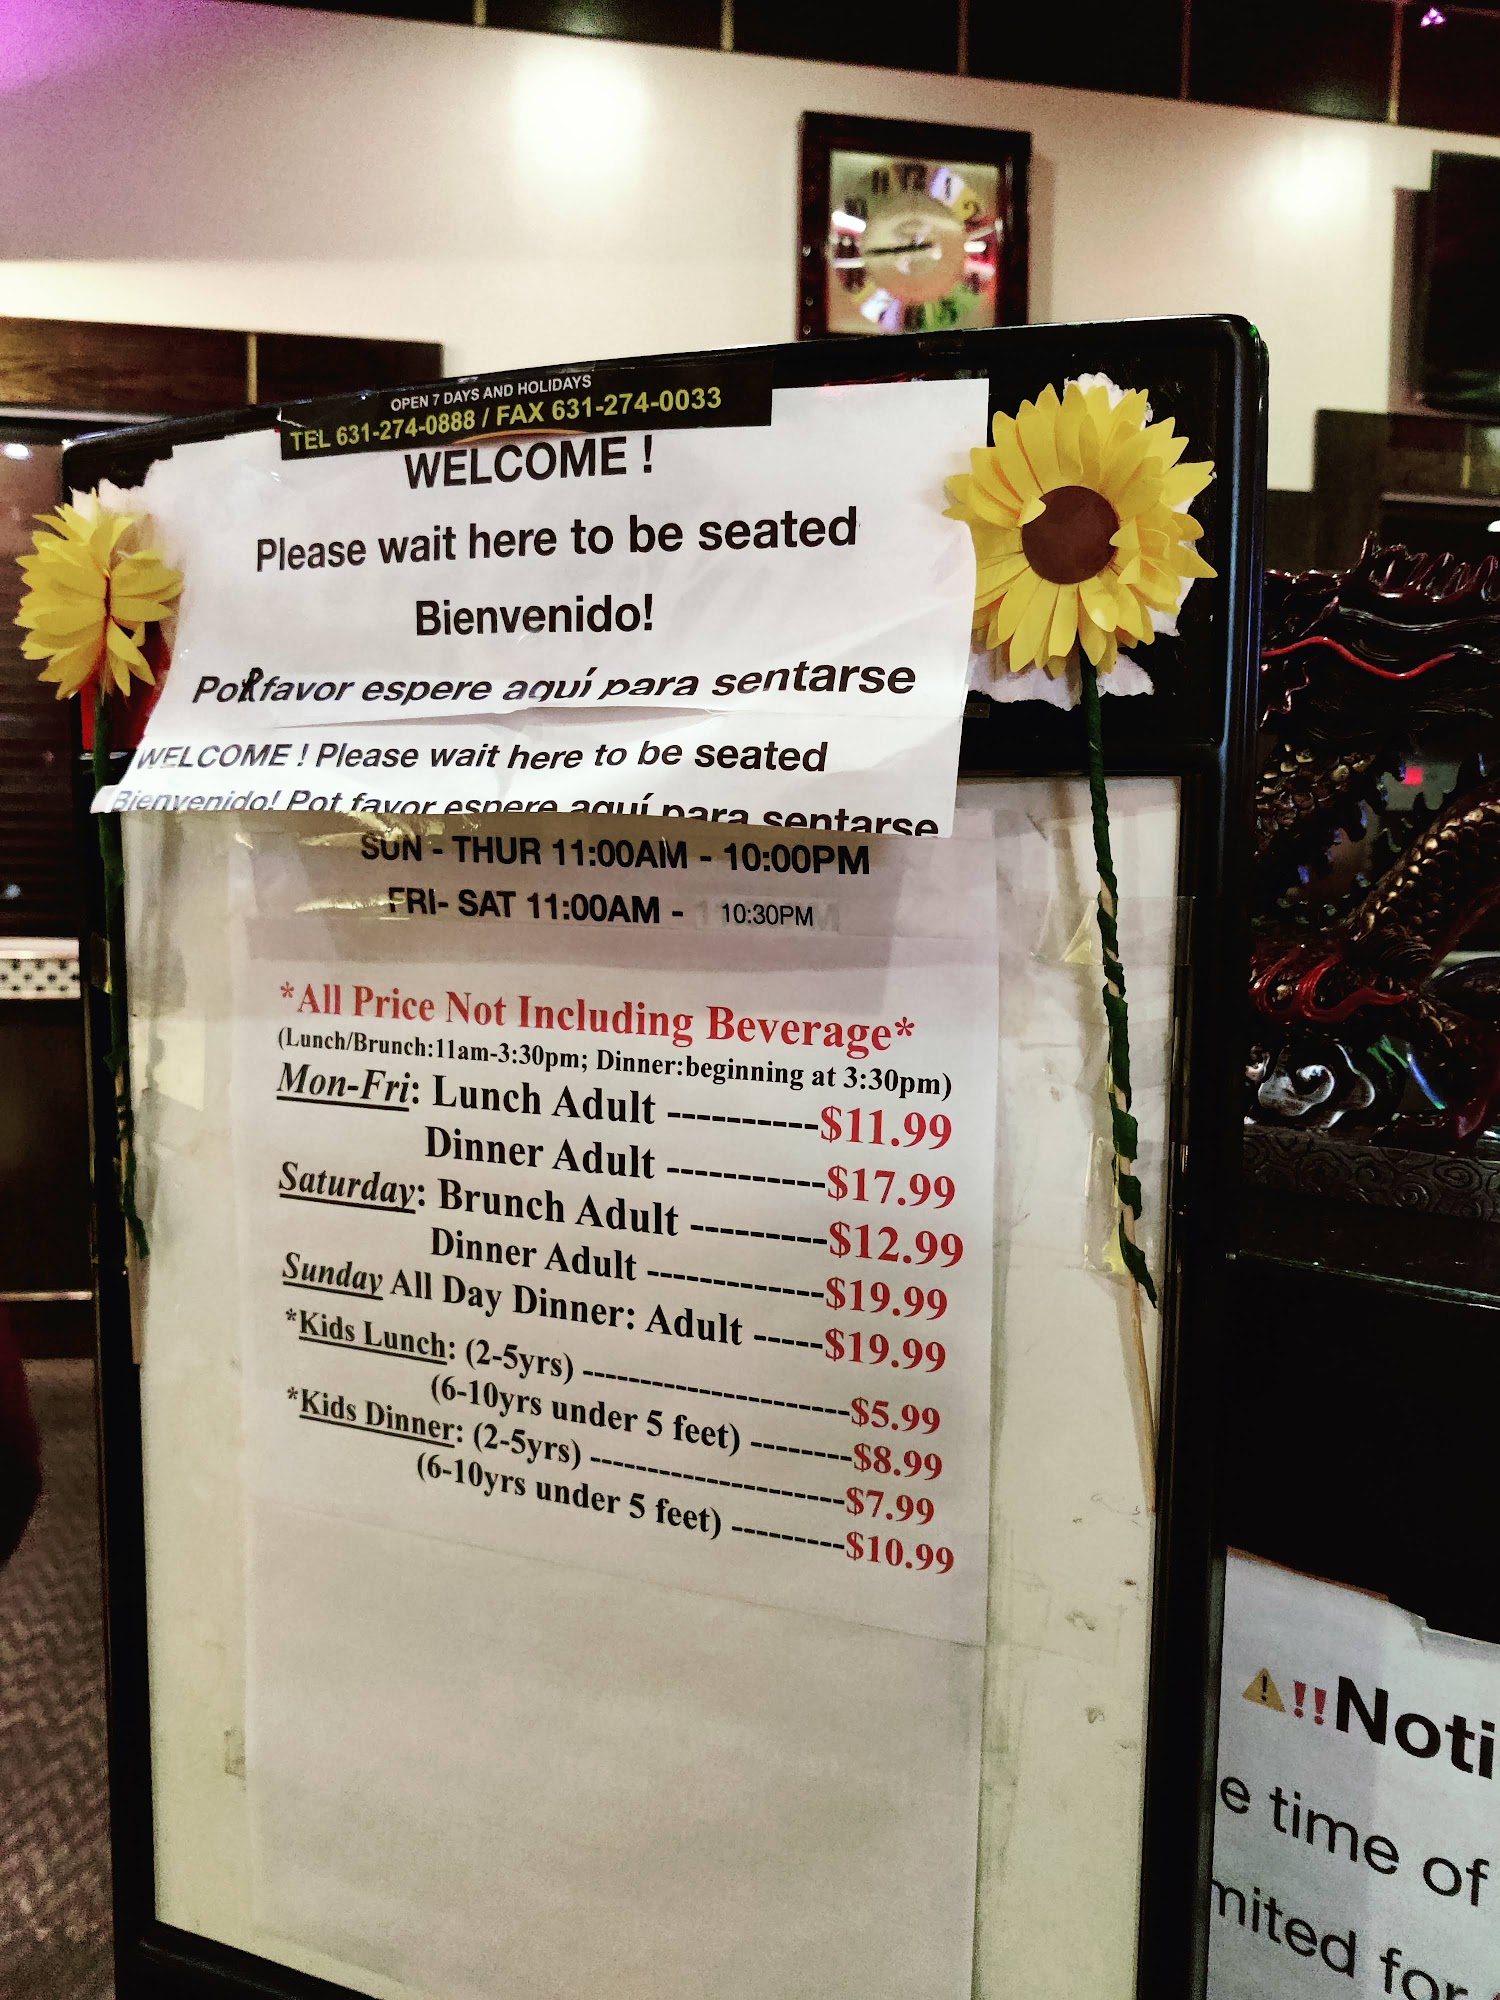 OPEN 7 DAYS AND HOLIDAYS
TEL 631-274-0888 / FAX 631-274-0033
WELCOME !
Please wait here to be seated
Bienvenido!
PoR favor espere aquí para sentarse
WELCOME ! Please wait here to be seated
Bienvenido! Pot favor espere aquí para sentarse
SUN - THUR 11:00AM - 10:00PM
FRI- SAT 11:00AM - 10:30PM
*All Price Not Including Beverage*
(Lunch/Brunch:11am-3:30pm; Dinner:beginning at 3:30pm)
Mon-Fri: Lunch Adult ----------$11.99
Dinner Adult -----------$17.99
Saturday: Brunch Adult ---------$12.99
Dinner Adult ------------$19.99
Sunday All Day Dinner: Adult -----$19.99
*Kids Lunch: (2-5yrs) -------------------$5.99
(6-10yrs under 5 feet) --------$8.99
*Kids Dinner: (2-5yrs) -------------------$7.99
(6-10yrs under 5 feet) --------$10.99
⚠️‼️Noti
e time of
mited for